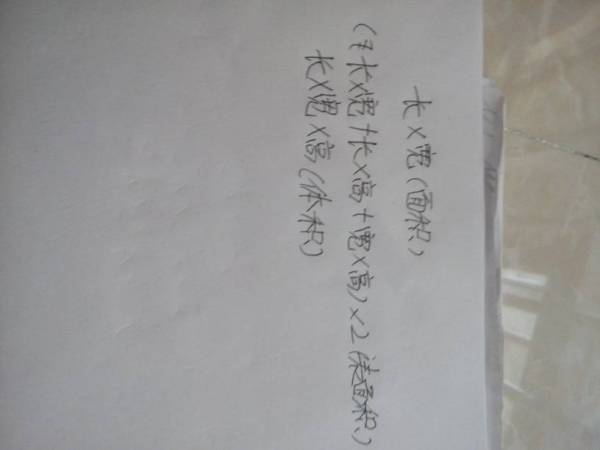 长×宽(面积)
(长×宽+长×高+宽×高)×2(表面积)
长×宽×高(体积)